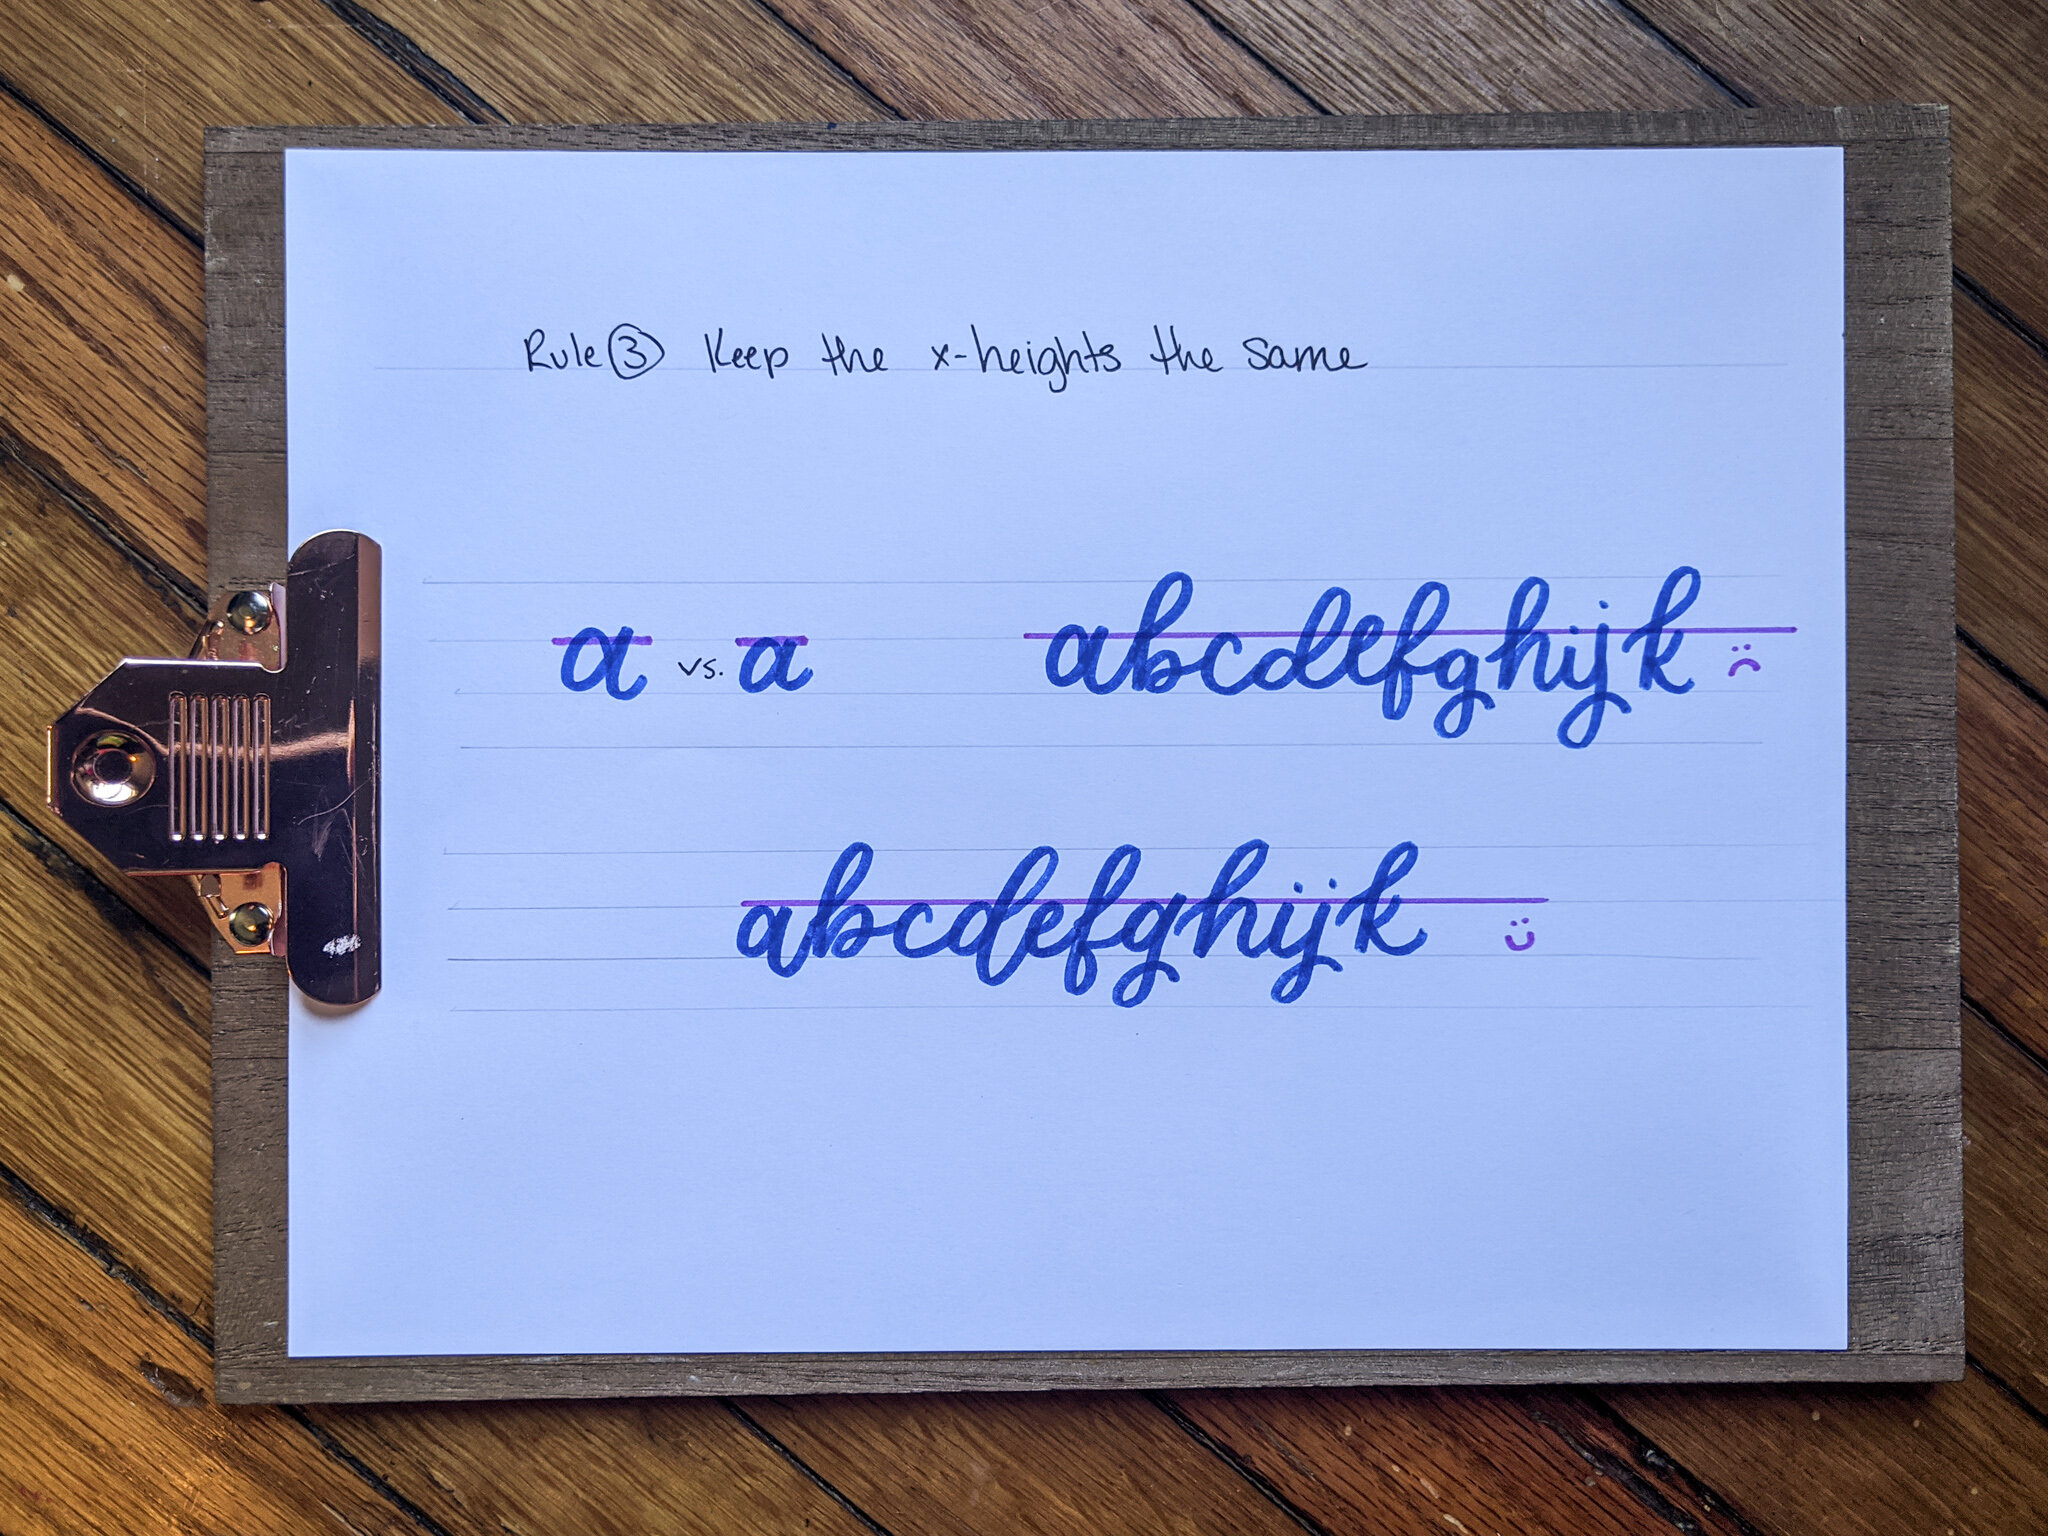 Rule 3 Keep the x-heights the same
a vs. a abcdefghijk
abcdefghijk